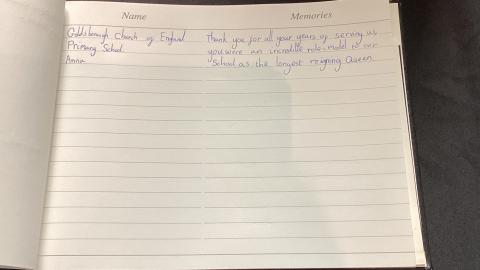 Name Memories
Goldsborough Church of England Thank you for all your years of serving us
Primary School you were an incredible role-model to our
Anna School as the longest reigning Queen.